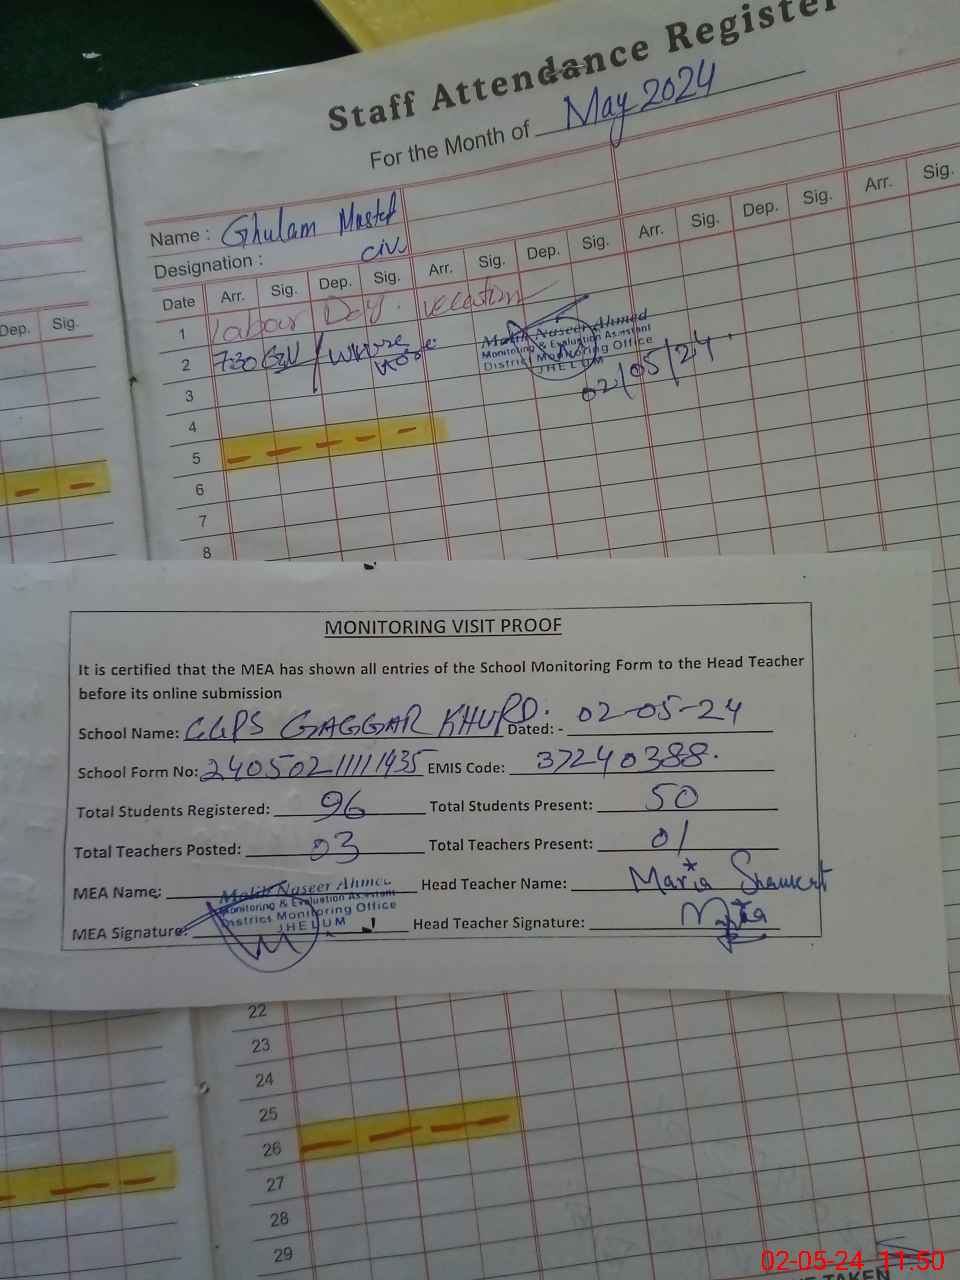 Staff Attendance Register
For the Month of May 2024
Name : Ghulam
Designation : civ
Date Arr. Sig. Dep. Sig. Arr. Sig. Dep. Sig. Arr. Sig. Dep. Sig. Arr. Sig.
Dep. Sig.
1 Labour Day. vacation
2 730
Malik Naseer Ahmed
Monitoring & Evaluation Assistant
District Monitoring Office
JHELUM
02/05/24
3
4
5
6
7
8
MONITORING VISIT PROOF
It is certified that the MEA has shown all entries of the School Monitoring Form to the Head Teacher
before its online submission
School Name: GGPS GAGGAR KHURD. Dated: - 02-05-24
School Form No: 240502111111435 EMIS Code: 37240388.
Total Students Registered: 96 Total Students Present: 50
Total Teachers Posted: 03 Total Teachers Present: 01
MEA Name: Malik Naseer Ahmed Head Teacher Name: Maria Shaukat
Monitoring & Evaluation Assistant
District Monitoring Office
JHELUM
MEA Signature: Head Teacher Signature: Maria
22
23
24
25
26
27
28
29
TAKEN
02-05-24 11:50